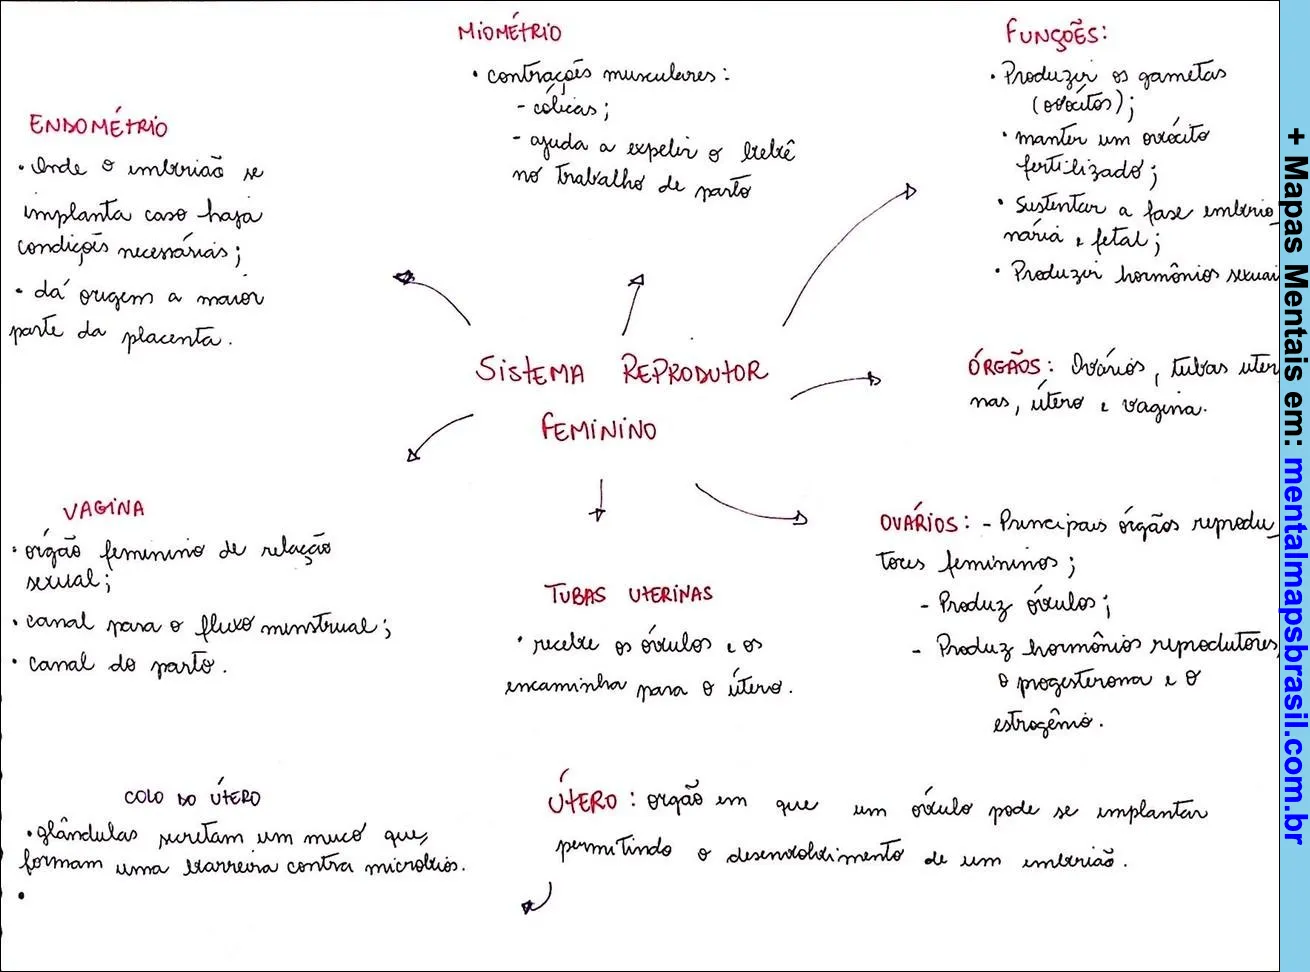 MIOMÉTRIO
• contrações musculares:
- cólicas;
- ajuda a expelir o bebê
no trabalho de parto
FUNÇÕES:
• Produzir os gametas
(ovócitos);
• manter um ovócito
fertilizado;
• Sustentar a fase embrio_
nária e fetal;
• Produzir hormônios sexuai
ENDOMÉTRIO
• Onde o embrião se
implanta caso haja
condições necessárias;
• dá origem a maior
parte da placenta.
SISTEMA REPRODUTOR
FEMININO
ÓRGÃOS: Ovários, tubas uter
nas, útero e vagina.
VAGINA
• orgão feminino de relação
sexual;
• canal para o fluxo menstrual;
• canal do parto.
TUBAS UTERINAS
• recebe os óvulos e os
encaminha para o útero.
OVÁRIOS: - Principais órgãos reprodu_
tores femininos;
- Produz óvulos;
- Produz hormônios reprodutores,
o progesterona e o
estrogênio.
COLO DO ÚTERO
• glândulas secretam um muco que,
formam uma barreira contra micróbios.
•
ÚTERO: orgão em que um óvulo pode se implantar
permitindo o desenvolvimento de um embrião.
+ Mapas Mentais em: mentalmapsbrasil.com.br